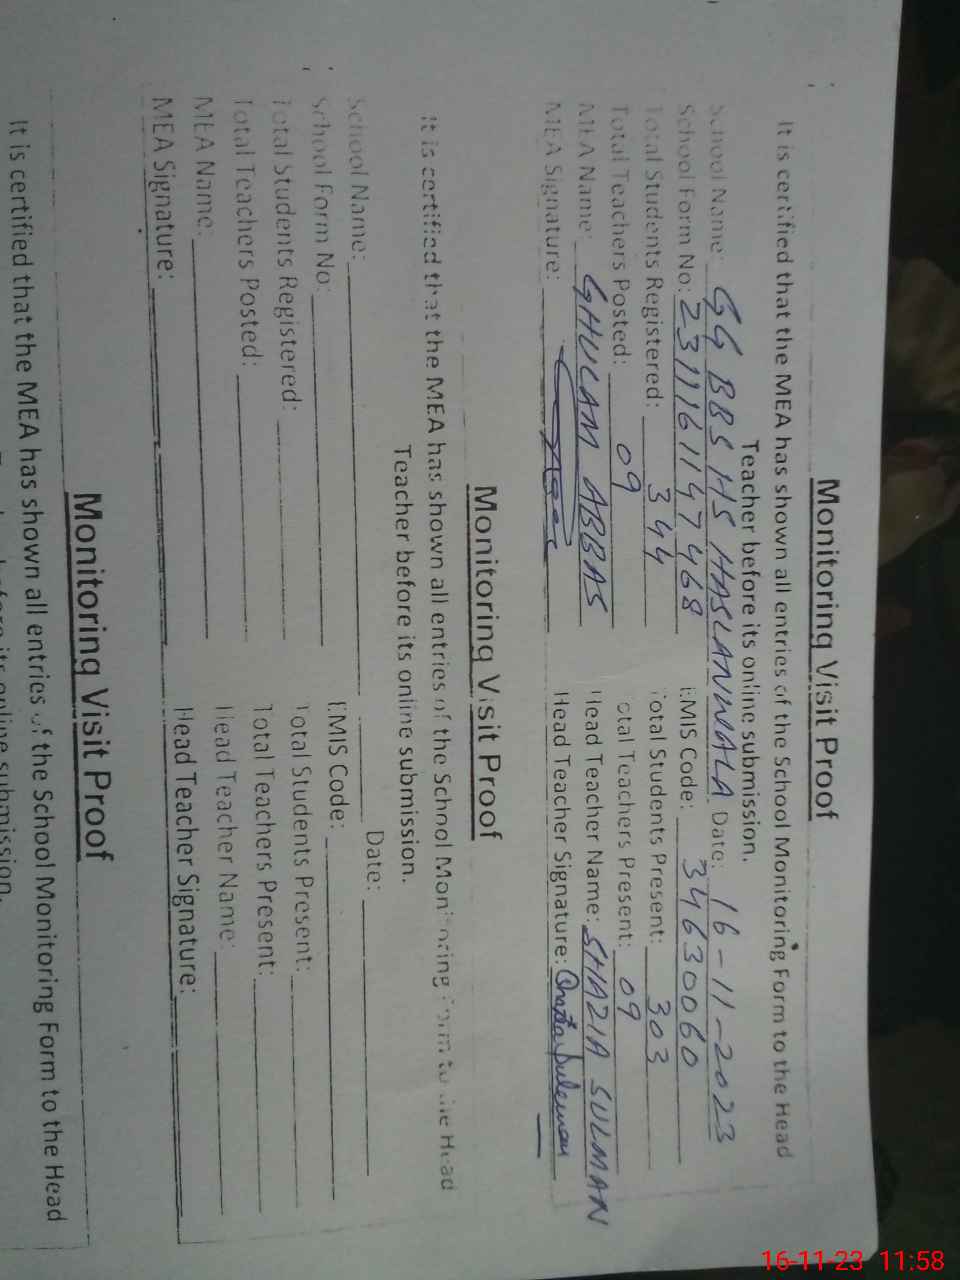 Monitoring Visit Proof
It is certified that the MEA has shown all entries of the School Monitoring Form to the Head
Teacher before its online submission.
School Name: GG BBS HS HASLANWALA Date: 16-11-2023
School Form No: 2311161147468 EMIS Code: 34630060
Total Students Registered: 344 Total Students Present: 303
Total Teachers Posted: 09 Total Teachers Present: 09
MEA Name: GHULAM ABBAS Head Teacher Name: SHAZIA SULMAN
MEA Signature: Head Teacher Signature:
Monitoring Visit Proof
It is certified that the MEA has shown all entries of the School Monitoring Form to the Head
Teacher before its online submission.
School Name: Date:
School Form No: EMIS Code:
Total Students Registered: Total Students Present:
Total Teachers Posted: Total Teachers Present:
MEA Name: Head Teacher Name:
MEA Signature: Head Teacher Signature:
Monitoring Visit Proof
It is certified that the MEA has shown all entries of the School Monitoring Form to the Head
Teacher before its online submission.
16-11-23 11:58